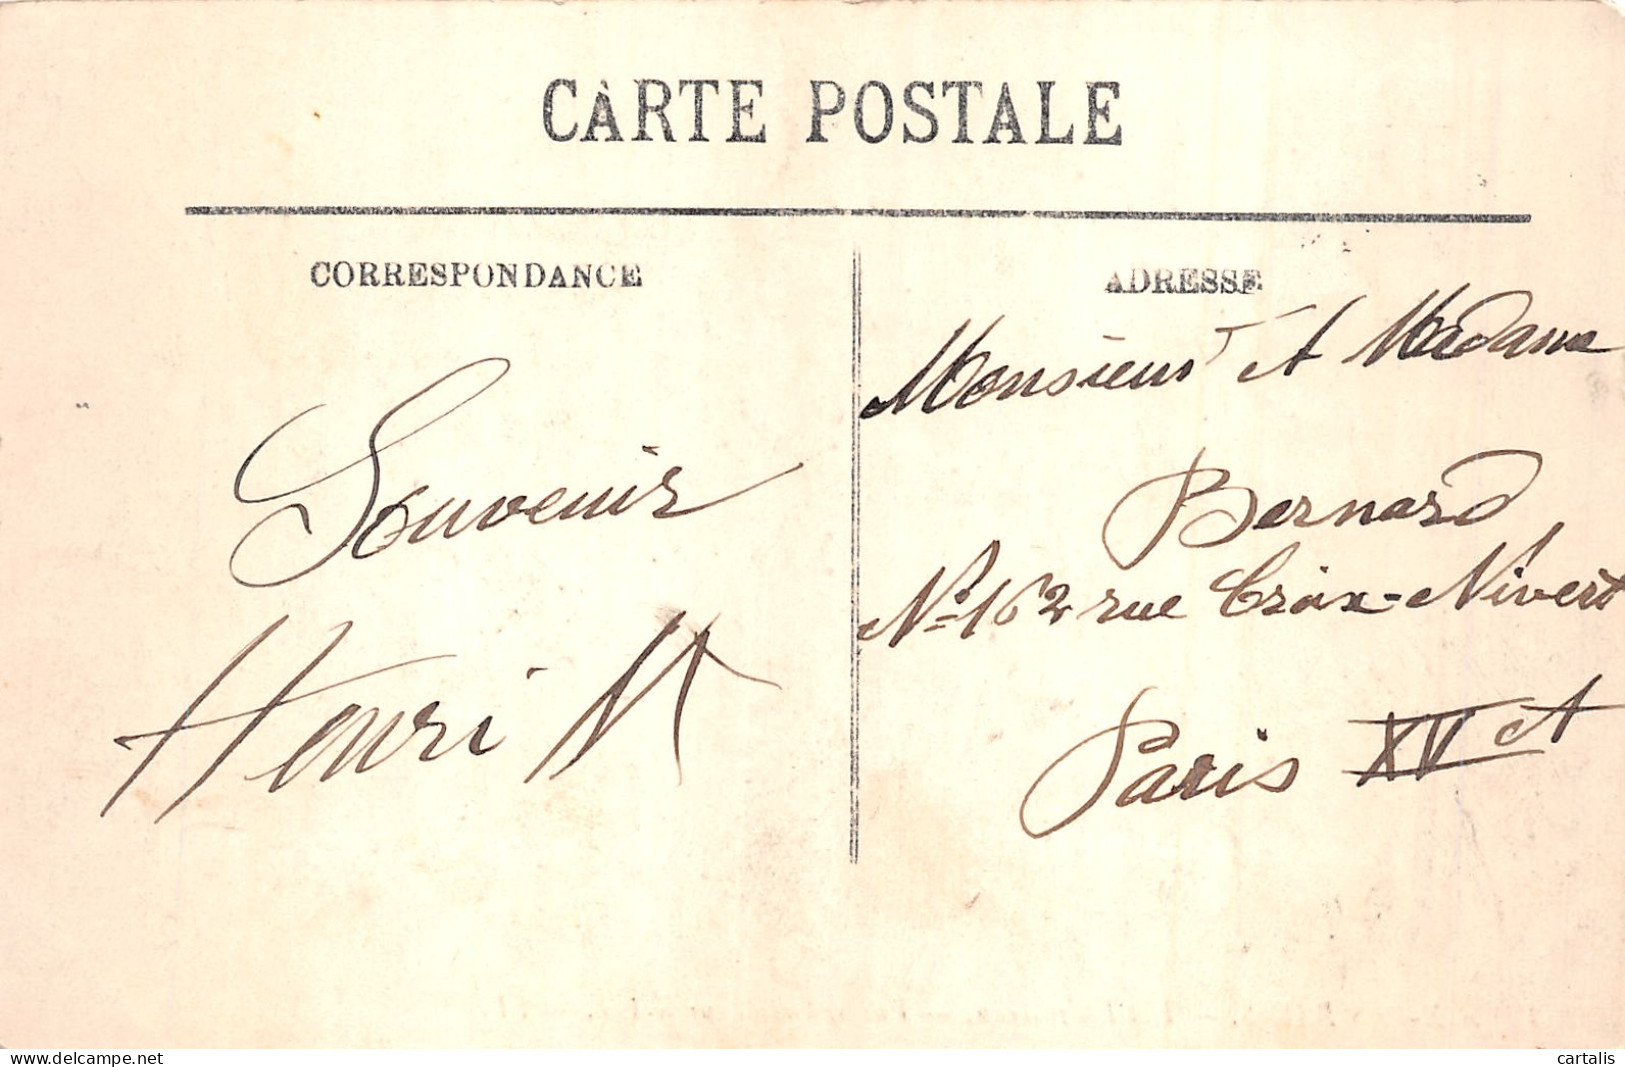 CARTE POSTALE
CORRESPONDANCE
ADRESSE
Souvenir
Henri M
Monsieur et Madame
Bernard
N° 162 rue Croix-Nivert
Paris XV et
delcampe.net
cartalis